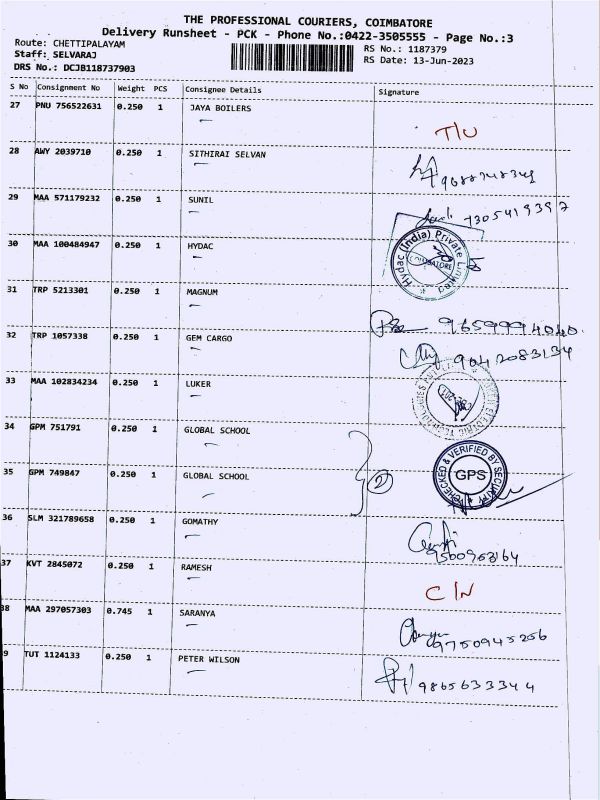 THE PROFESSIONAL COURIERS, COIMBATORE
Delivery Runsheet - PCK - Phone No.:0422-3505555 - Page No.:3
Route: CHETTIPALAYAM
RS No.: 1187379
Staff: SELVARAJ
RS Date: 13-Jun-2023
DRS No.: DCJB118737903
S No Consignment No Weight PCS Consignee Details Signature
27 PNU 756522631 0.250 1 JAYA BOILERS
T/U
28 AWY 2039710 0.250 1 SITHIRAI SELVAN
29 MAA 571179232 0.250 1 SUNIL
7305419397
30 MAA 100484947 0.250 1 HYDAC
Hydac (India) Private Limited
COIMBATORE
31 TRP 5213301 0.250 1 MAGNUM
9659994040
32 TRP 1057338 0.250 1 GEM CARGO
9042083134
33 MAA 102834234 0.250 1 LUKER
34 GPM 751791 0.250 1 GLOBAL SCHOOL
CHECKED & VERIFIED BY SECURITY
GPS
35 GPM 749847 0.250 1 GLOBAL SCHOOL
2
36 SLM 321789658 0.250 1 GOMATHY
37 KVT 2845072 0.250 1 RAMESH
C/N
38 MAA 297057303 0.745 1 SARANYA
9750945256
9 TUT 1124133 0.250 1 PETER WILSON
9865633344